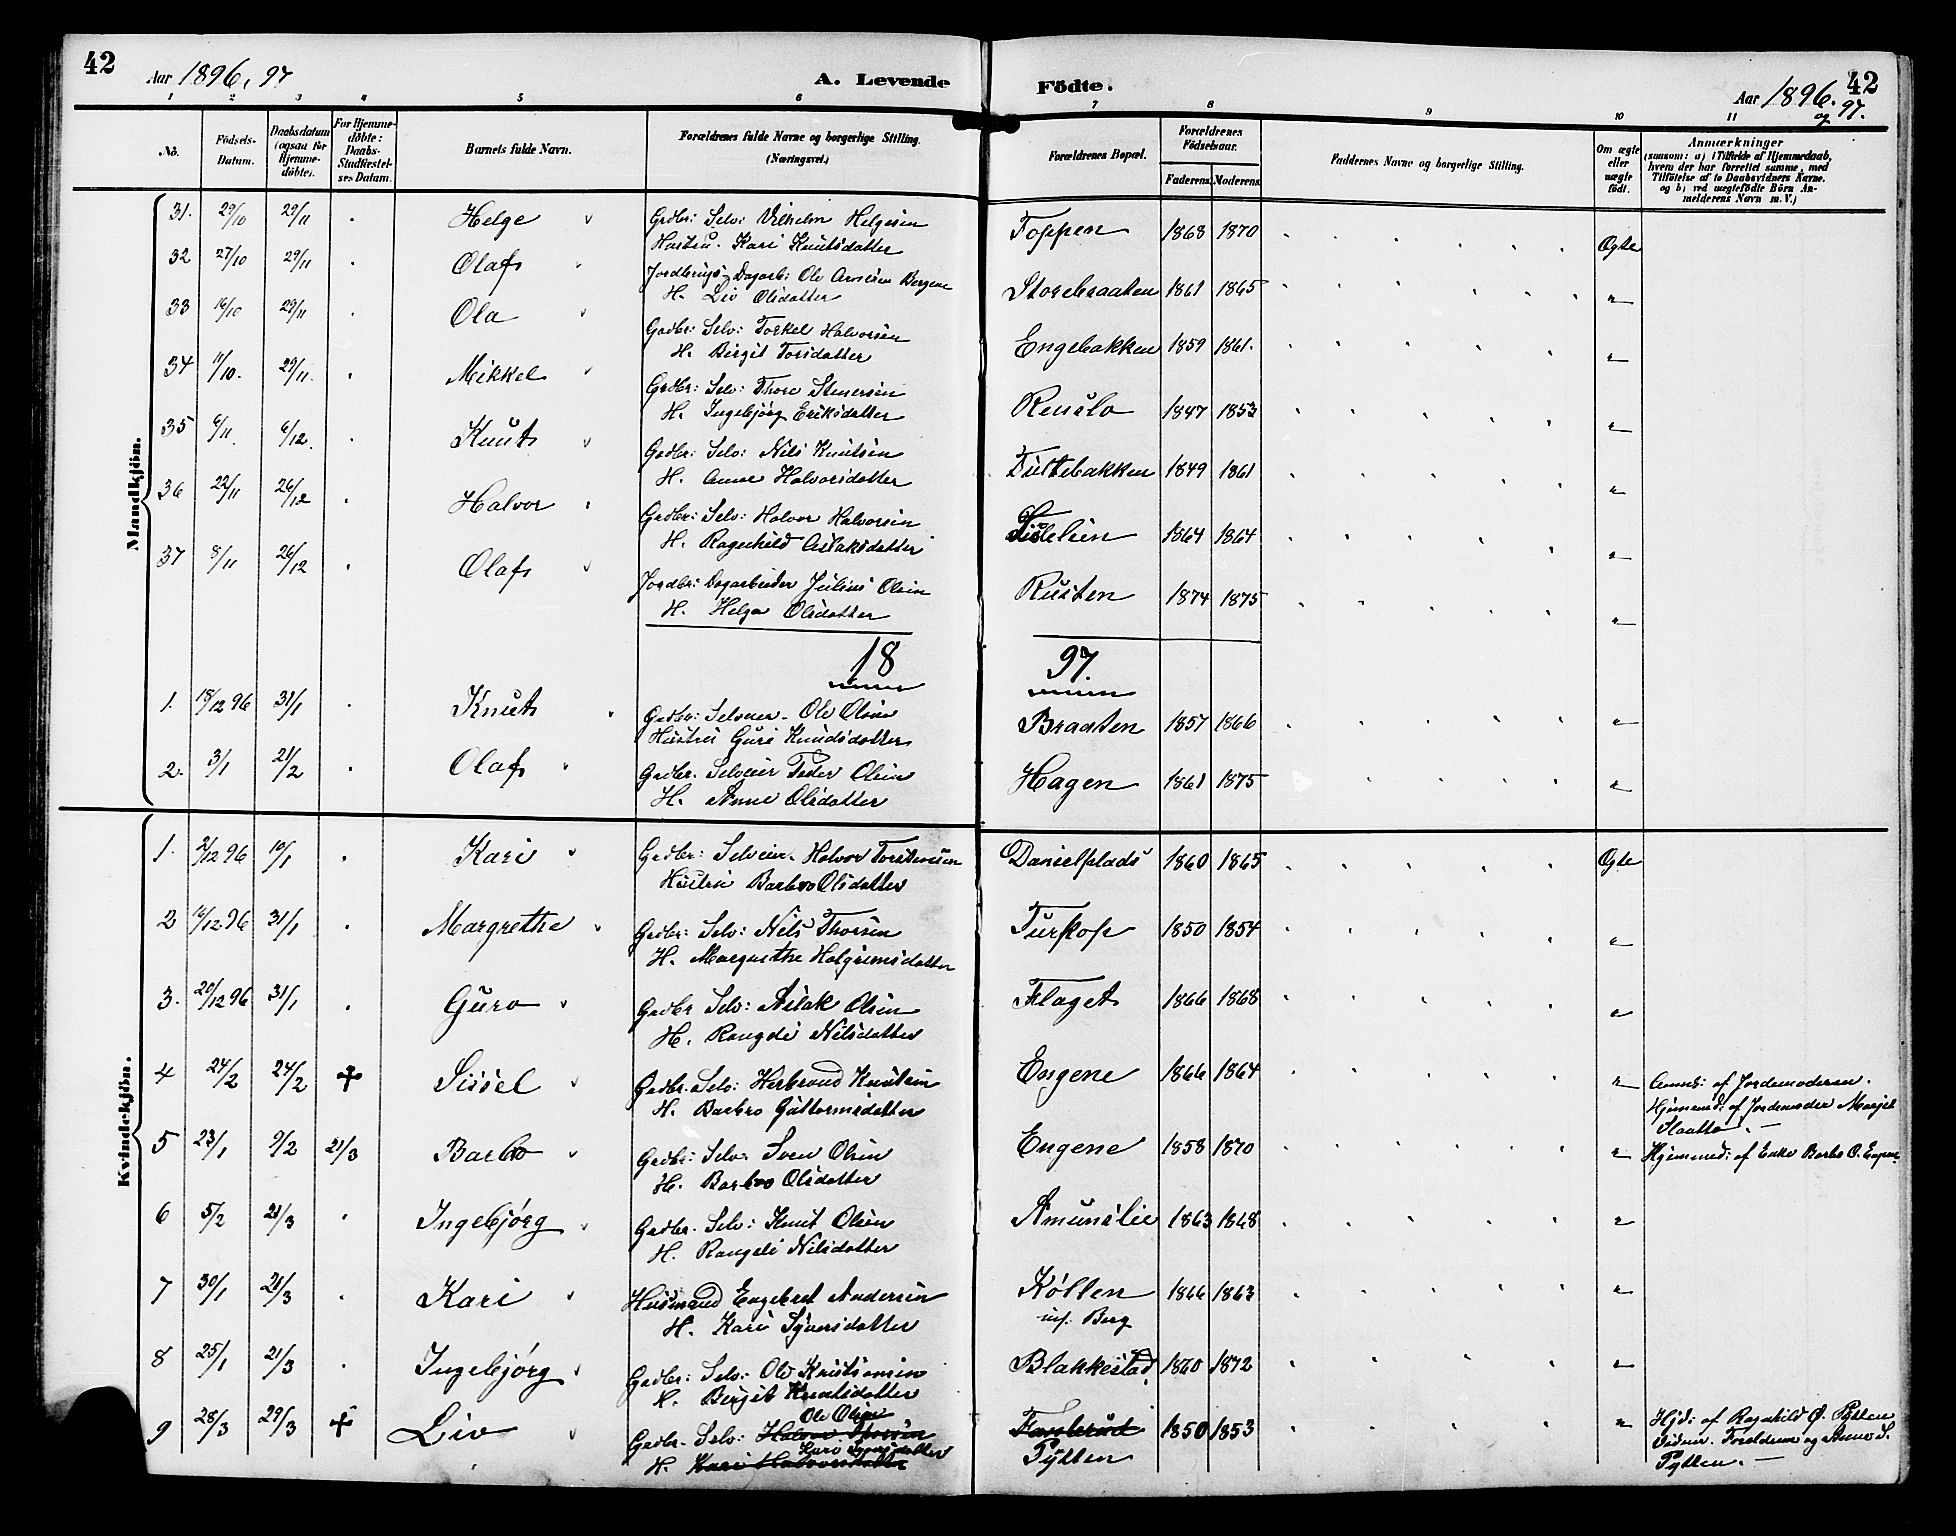 42
Aar 1896, 97
A. Levende
Födte.
Aar 1896. og 97.
42
1 2 3 4 5 6 7 8 9 10 11
No.
Födsels-Datum.
Daabsdatum (ogsaa for Hjemme-döbte).
For Hjemme-döbte: Daabs-Stadfæstel-ses Datum.
Barnets fulde Navn.
Forældrenes fulde Navne og borgerlige Stilling. (Næringsvei.)
Forældrenes Bopæl.
Forældrenes Födselsaar.
Faderens. Moderens.
Faddernes Navne og borgerlige Stilling.
Om ægte eller uægte födt.
Anmærkninger
(saasom: a) i Tilfælde af Hjemmedaab, hvem der har forrettet samme, med Tilföielse af to Daabsvidners Navne, og b) ved uægtefödte Börn An-melderens Navn m. V.)
Mandkjön.
31. 29/10 29/11 Helge Gadbr: Selv: Vilhelm Helgesen Foppen 1868 1870 Ægte
Hustru. Kari Knutsdatter
32 27/10 29/11 Olaf Jordbrugs Dagarb: Ole Arnesen Bergene Storebraaten 1861 1865 "
H. Liv Olsdatter
33 16/10 29/11 Ola Gadbr: Selv: Torkel Halvorsen Engebakken 1859 1861. "
H. Birgit Torsdatter
34 11/10. 29/11. Mikkel Gadbr: Selv: Thore Stenersen 1847 1853 "
H. Ingebjörg Eriksdatter
35 6/11. 6/12. Knut Gadbr: Selv: Nils Knutsen Tuftebakken 1849 1861 "
H. Anne Halvorsdatter
36 22/11 26/12 Halvor Gadbr: Selv: Halvor Halvorsen 1864 1864 "
H. Ragnhild Aslaksdatter
37 8/11 26/12 Olaf Jordbr: Dagarbeider Julius Olsen Rusten 1874 1875 "
H. Helga Olsdatter
18 97.
1. 18/12 96 31/1 Knut Gadbr: Selveier. Ole Olsen Braaten 1857 1866 "
Hustru Guri Knudsdatter
2. 3/1 21/2 Olaf Gadbr. Selveier Peder Olsen Hagen 1861 1875 "
H. Anne Olsdatter
Kvindekjön.
1. 2/12 96 10/1 Kari Gadbr: Selveier. Halvor Torstensen Danielplads 1860 1865 Ægte
Hustru Barbro Olsdatter
2 16/12 96 31/1 Margrethe Gadbr: Selv: Nils Thorsen Turkop 1850 1854 "
H. Margrethe Halgrimsdatter
3. 20/12 96 31/1 Guro Gadbr Selv: Aslak Olsen Flaget 1866 1868 "
H. Rangdi Nilsdatter
4 24/2 24/2 ✝ Sissel Gadbr. Selv: Herbrand Knutsen Engene 1866 1864 " Anm: af Jordemoderen.
H. Barbro Guttormsdatter Hjemmed: af Jordemoder Margit Slaatto. —
5 23/1 9/2 21/3 Barbro Gadbr: Selv: Sven Olsen Engene 1858 1870 " Hjemmed: af Enke Barbo O.
H. Barbro Olsdatter
6 5/2 21/3 Ingebjórg Gadbr. Selv: Knut Olsen Amunslie 1863 1868 "
H. Rangdi Nilsdatter
7 30/1 21/3 Kari Husmand Engebret Andersen Kóllen 1866 1863 "
H. Kari Syversdatter u/. Berg
8 25/1 21/3 Ingebjórg Gadbr: Selv: Ole Kristiansen Blakkestad, 1860 1872 "
H. Birgit Knutsdatter
9 28/3 29/3 ✝ Liv Gadbr. Selv: Halvor Thorsen Ole Olsen 1850 1853 " Hjd: af Ragnhild O. Pytten
H. Kari Halvorsdatter Pytten Vidner. Foreldrene og Anne S. Pytten. —